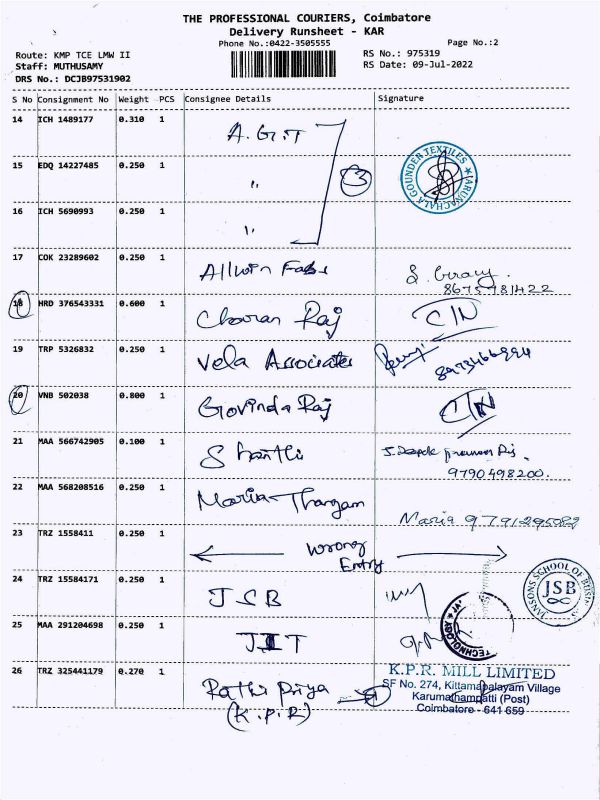 THE PROFESSIONAL COURIERS, Coimbatore
Delivery Runsheet - KAR
Phone No.:0422-3505555
Page No.:2
Route: KMP TCE LMW II
RS No.: 975319
Staff: MUTHUSAMY
RS Date: 09-Jul-2022
DRS No.: DCJB97531902
S No Consignment No Weight PCS Consignee Details Signature
14 ICH 1489177 0.310 1 A.G.T
15 EDQ 14227485 0.250 1 " 3
ARUNACHALA GOUNDER TEXTILES
16 ICH 5690993 0.250 1 "
17 COK 23289602 0.250 1 Allwin Fabs
18 HRD 376543331 0.600 1 Charan Raj C/N
19 TRP 5326832 0.250 1 Vela Associates
20 VNB 502038 0.800 1 Govinda Raj C/N
21 MAA 566742905 0.100 1 Shanthi
9790498200.
22 MAA 568208516 0.250 1 Maria Thangam
Maria
23 TRZ 1558411 0.250 1 Wrong
Entry
24 TRZ 15584171 0.250 1 JSB
JANSONS SCHOOL OF BUSI
JSB
25 MAA 291204698 0.250 1 JIT
TECHNOLOGY
26 TRZ 325441179 0.270 1 Rathi Priya
(K.P.R)
K.P.R. MILL LIMITED
SF No. 274, Kittampalayam Village
Karumathampatti (Post)
Coimbatore - 641 659